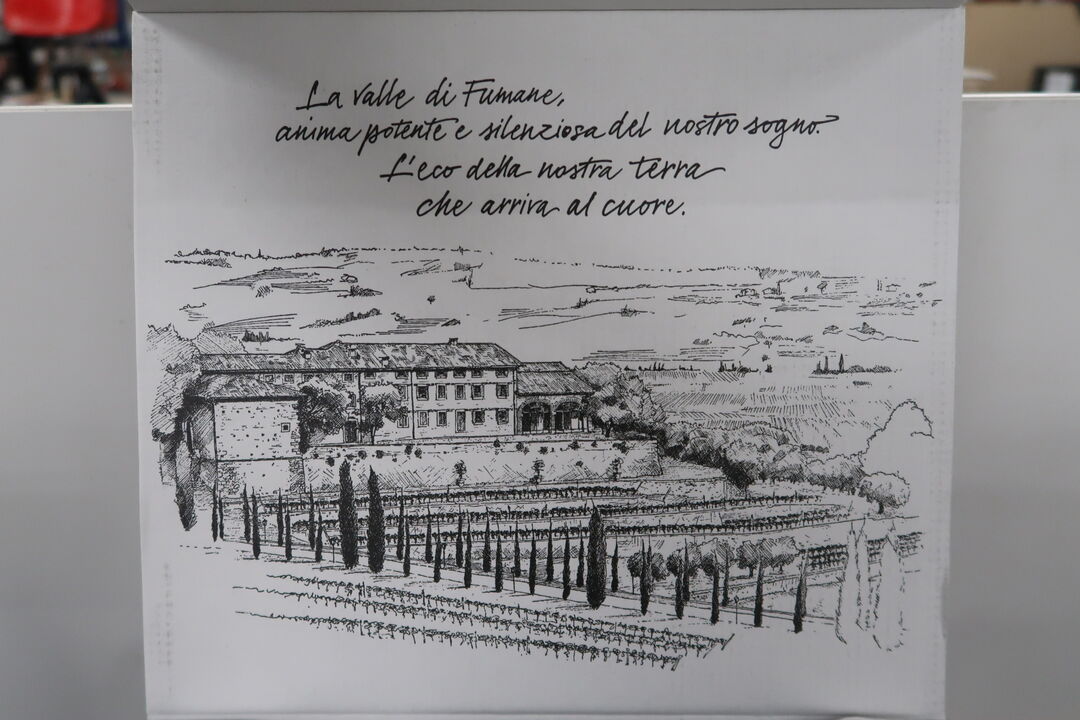 La valle di Fumane,
anima potente e silenziosa del nostro sogno.
L'eco della nostra terra
che arriva al cuore.